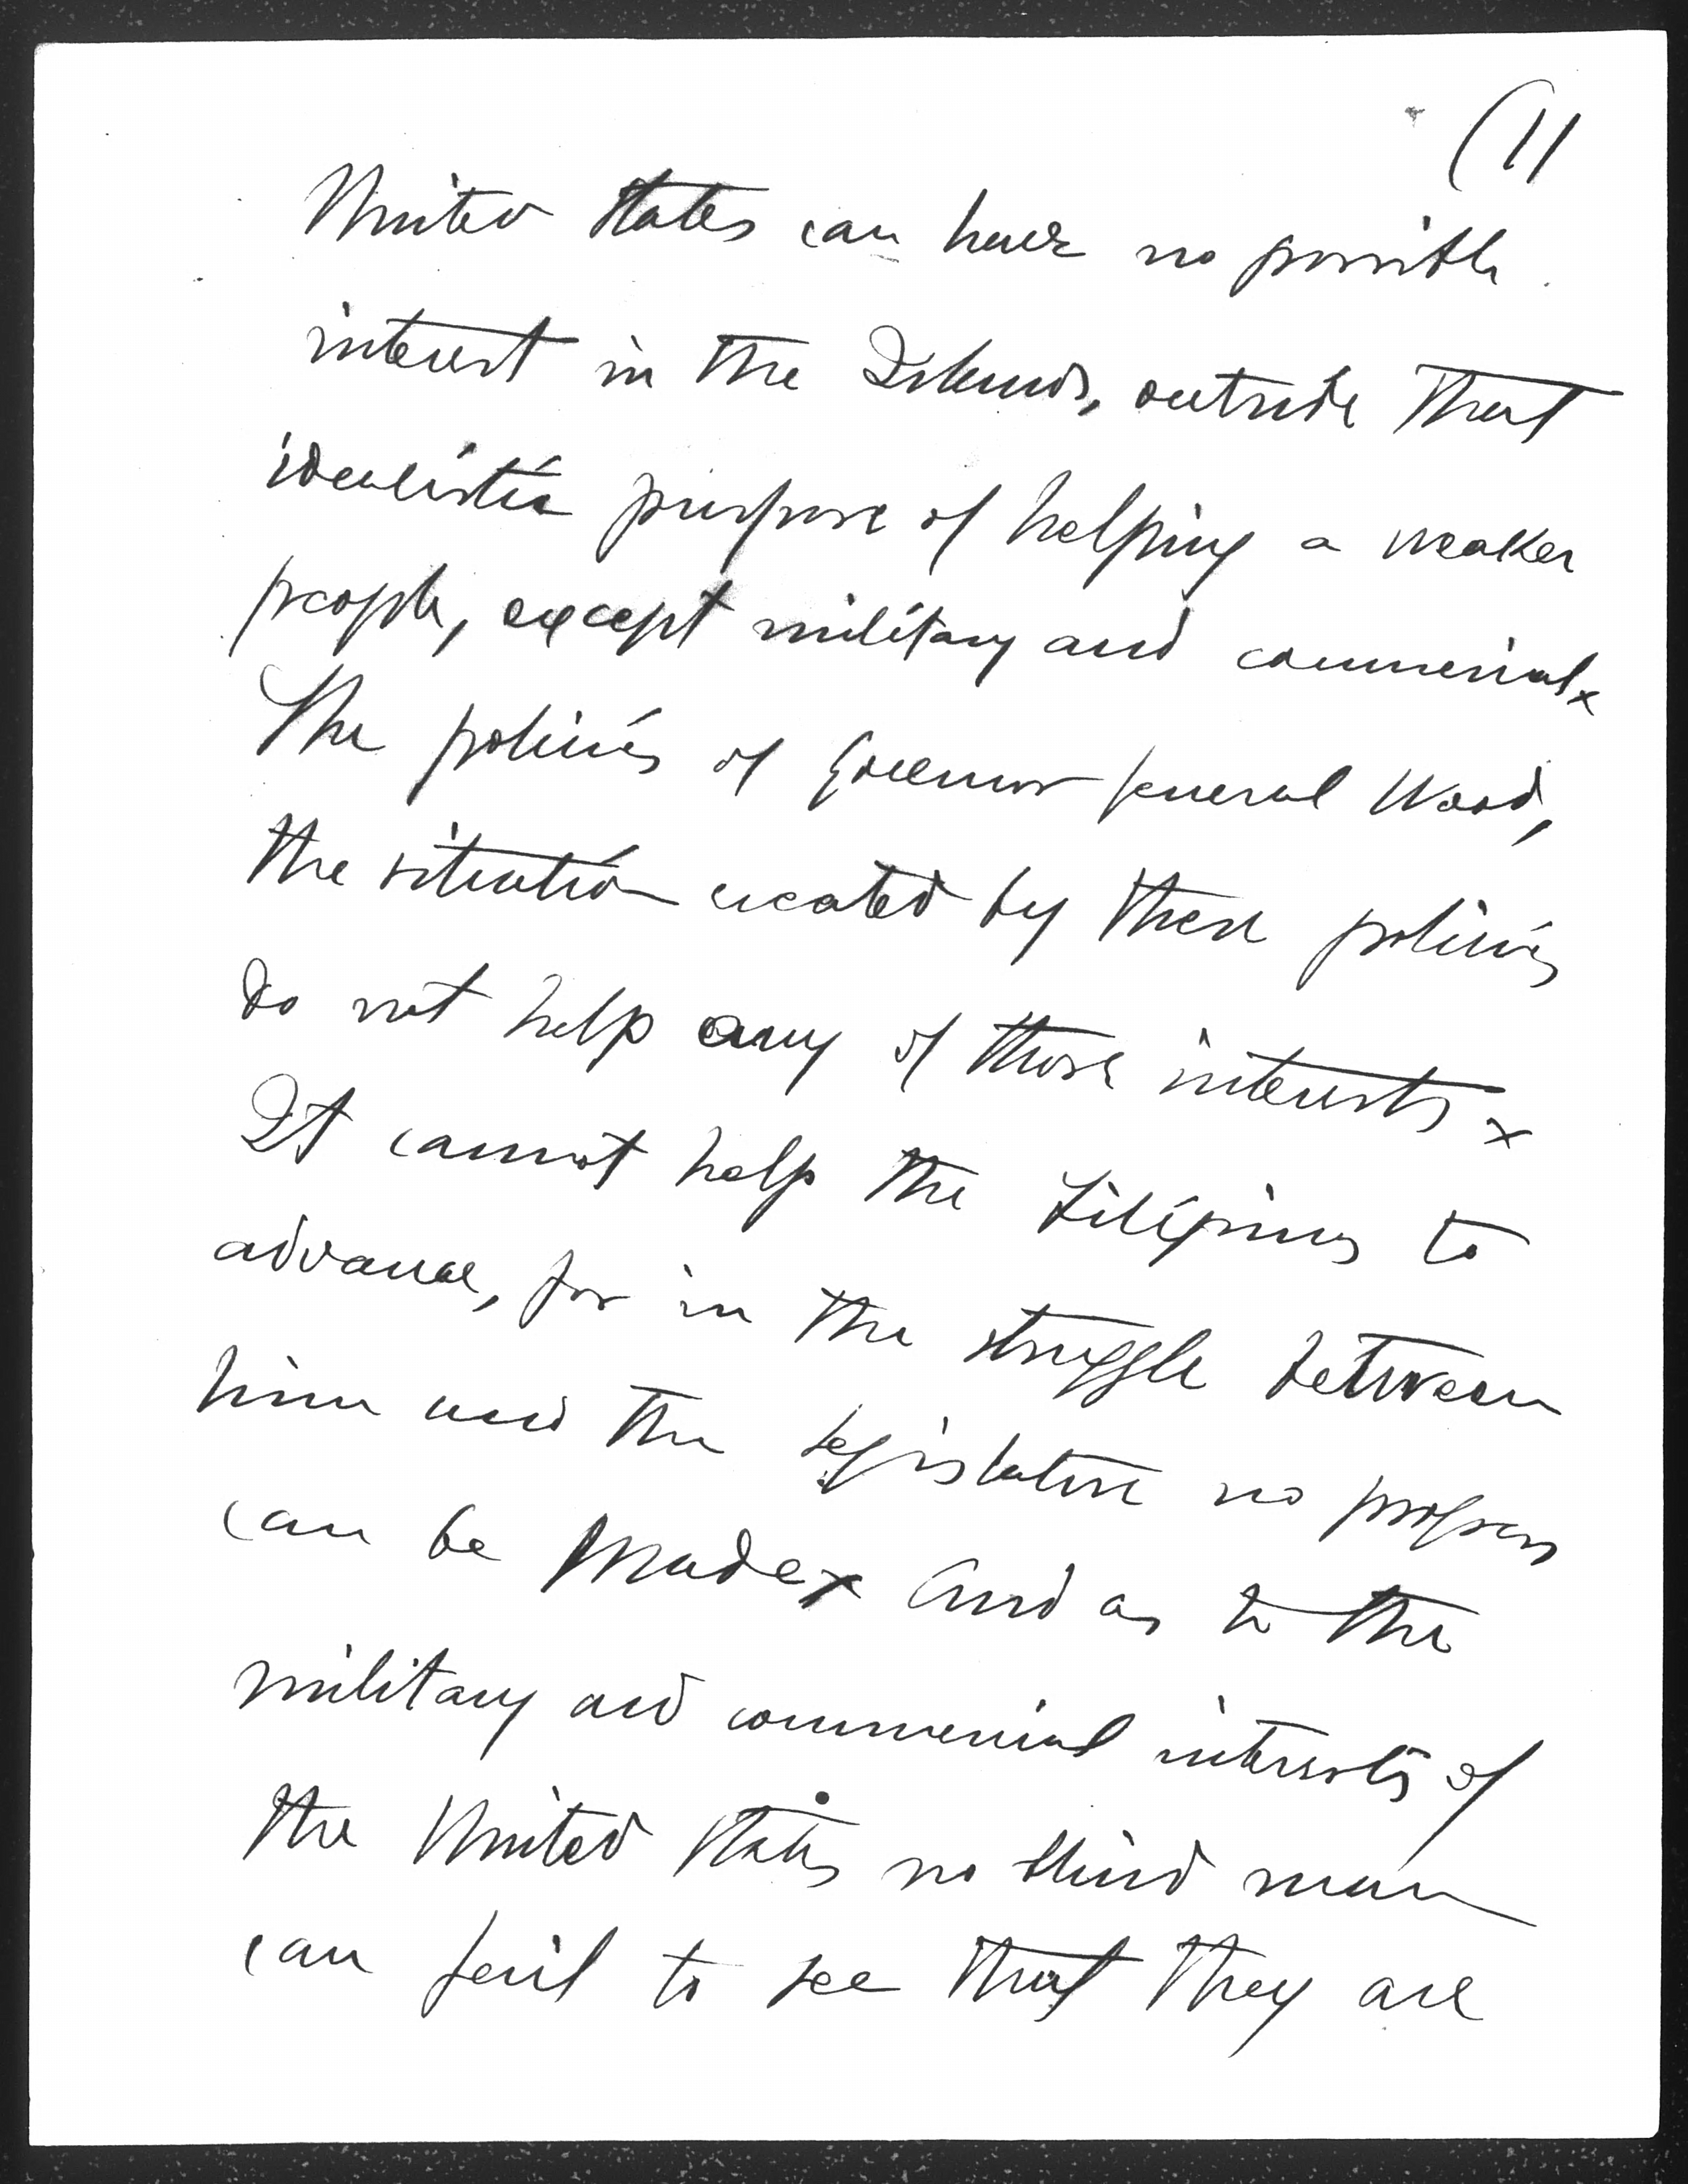 (11
United States can have no possible
interest in the Islands, outside that
idealistic purpose of helping a weaker
people, except military and commercial x
The policies of Governor General Wood,
the situation created by these policies
do not help any of those interests x
It cannot help the Filipinos to
advance, for in the struggle between
him and the legislature no progress
can be made x And as to the
military and commercial interests of
the United States no blind man
can fail to see that they are